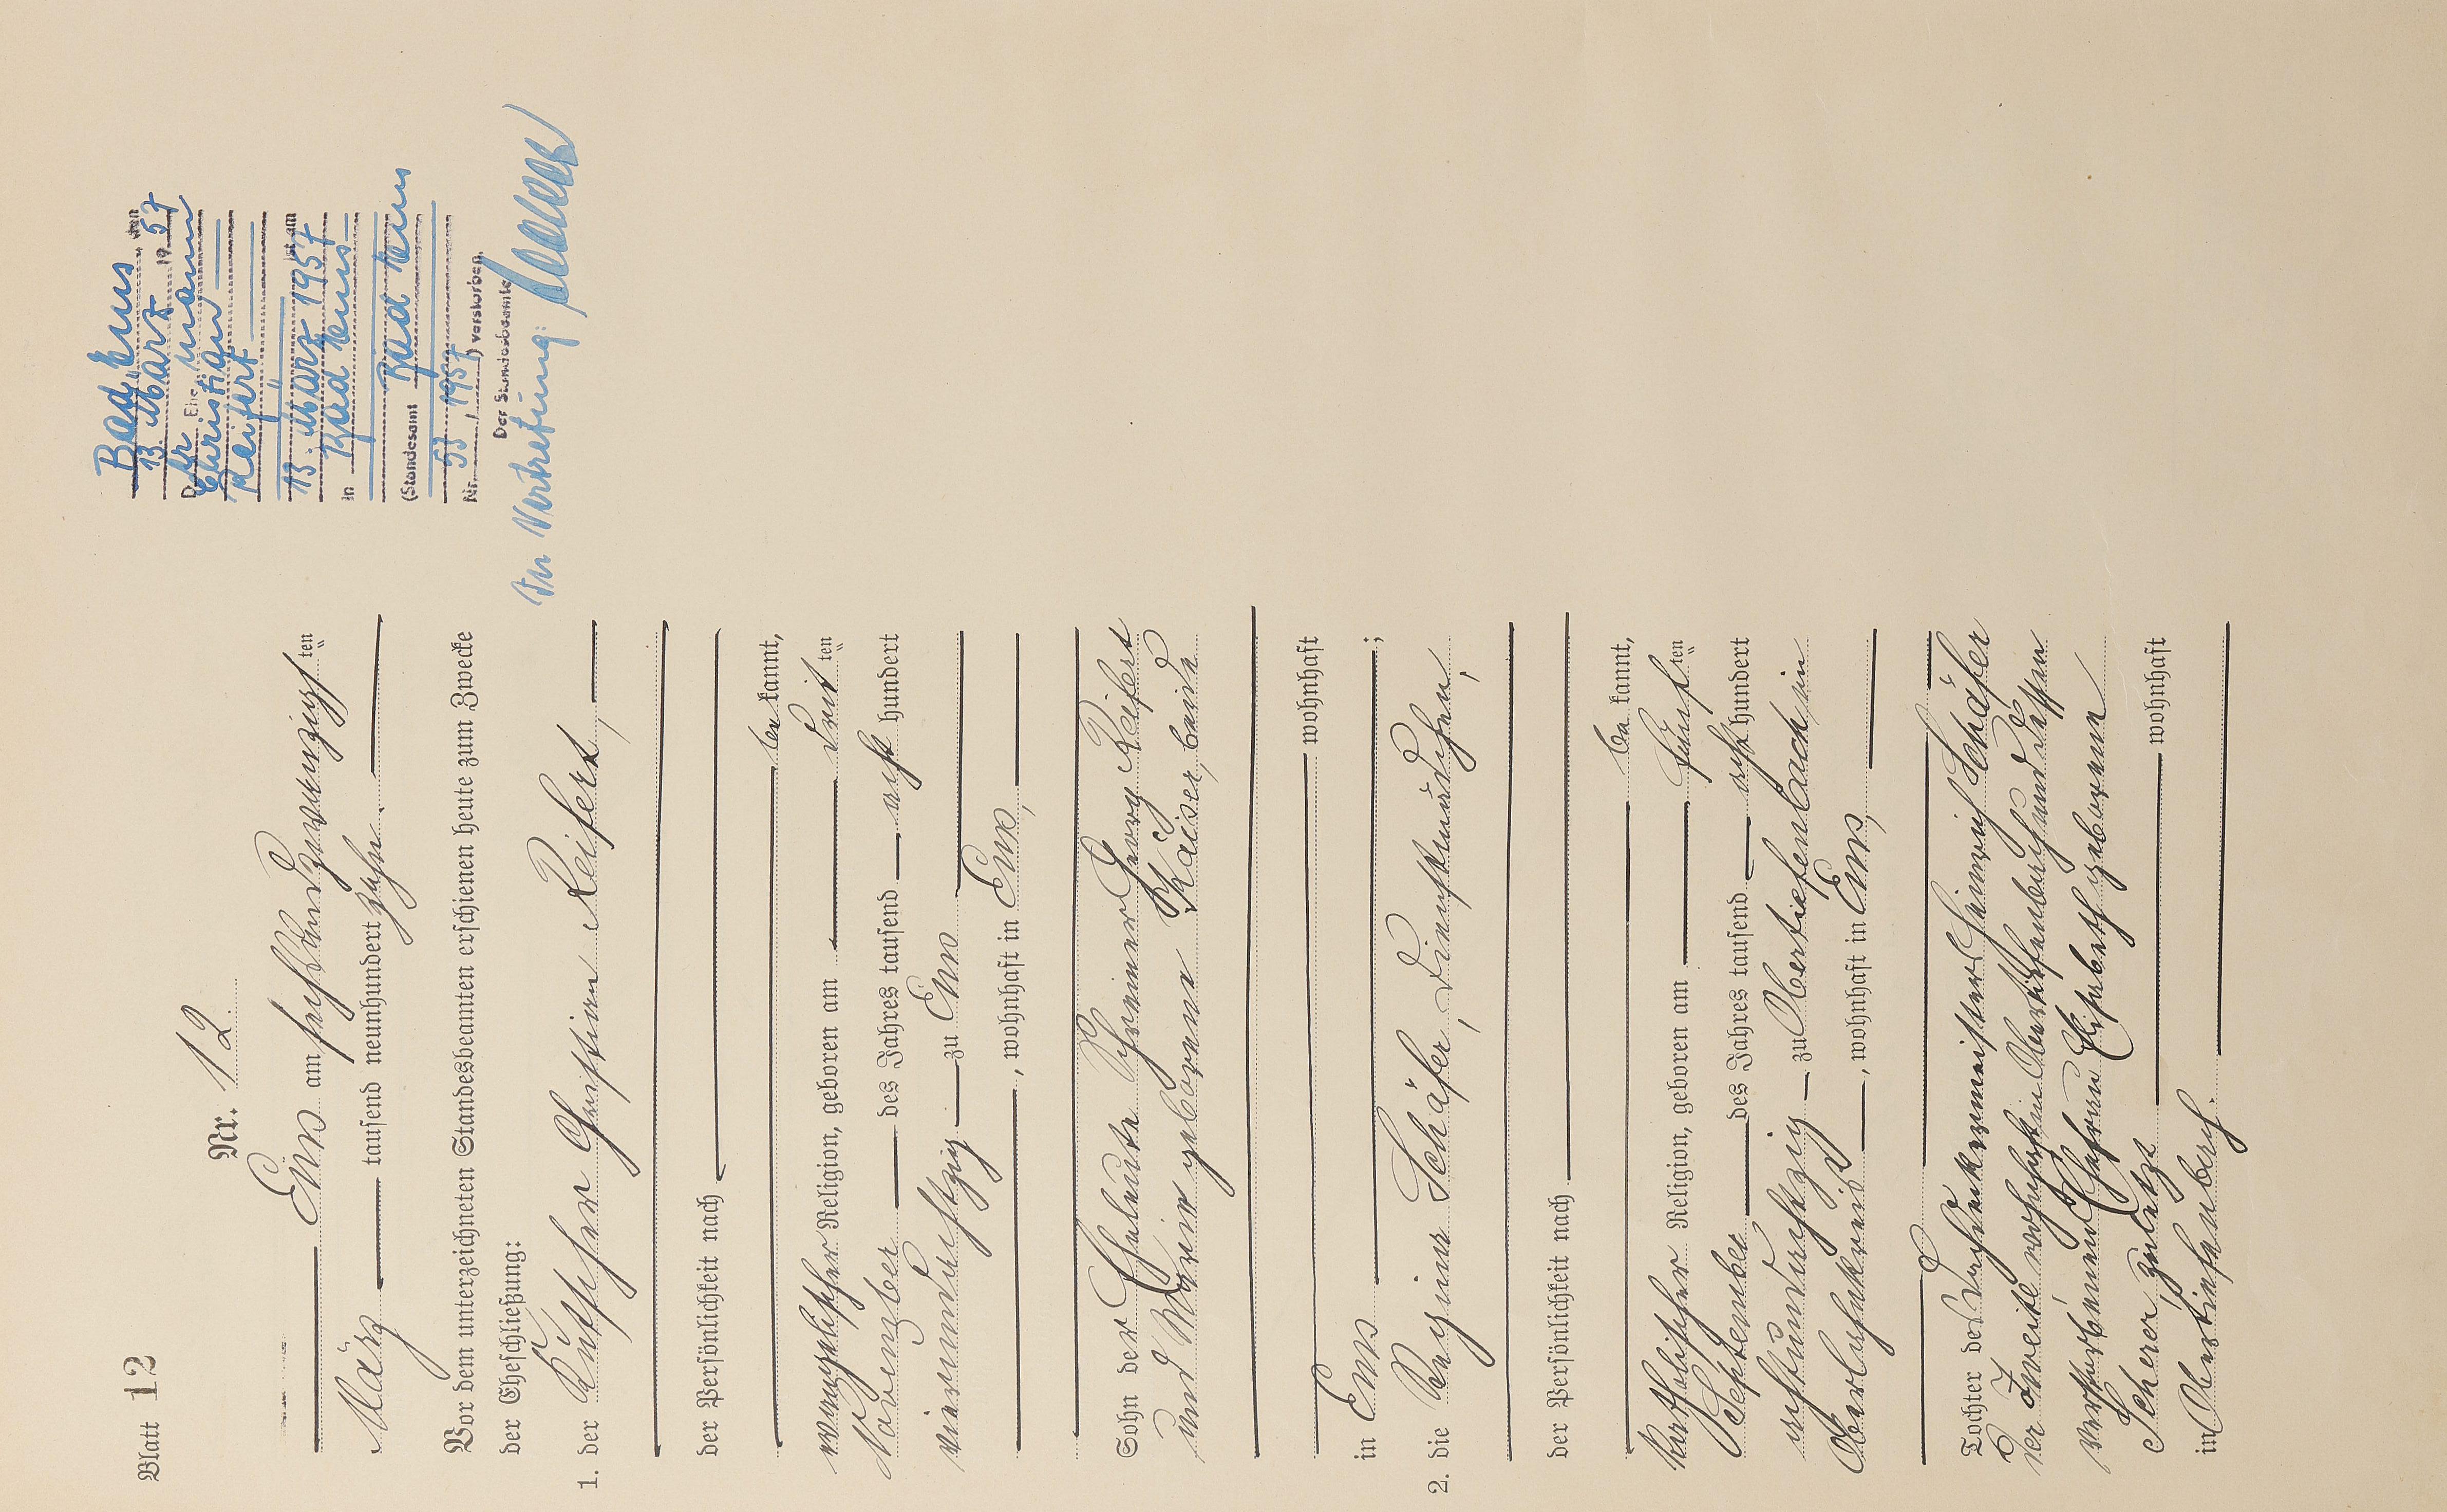 Blatt 12
Nr. 12.
Ems am sechsundzwanzigsten
März tausend neunhundert zehn.
Vor dem unterzeichneten Standesbeamten erschienen heute zum Zwecke
der Eheschließung:
1. der Kutscher Christian Reifert,
der Persönlichkeit nach
bekannt,
evangelischer Religion, geboren am dritten
November des Jahres tausend acht hundert
vierundachtzig zu Ems
, wohnhaft in Ems,
Sohn der Eheleute Schreiner Georg Reifert
und Marie geborene Kaiser, beide
wohnhaft
in Ems ;
2. die Regina Schäfer, Dienstmädchen,
der Persönlichkeit nach
bekannt,
katholischer Religion, geboren am fünften
September des Jahres tausend acht hundert
achtundachtzig zu Obertiefenbach im
Oberlahnkreis, wohnhaft in Ems,
Tochter des Dachdeckermeisters Heinrich Schäfer
der Zweite wohnhaft in Obertiefenbach und dessen
verstorbenen Ehefrau Elisabeth geborenen
Scherer zuletzt wohnhaft
in Obertiefenbach.
Bad Ems, den
13. März 1957
Der Ehemann
Christian
Reifert
ist am
13. März 1957
in Bad Ems
(Standesamt Bad Ems
Nr. 53, 1957) verstorben.
Der Standesbeamte
In Vertretung: